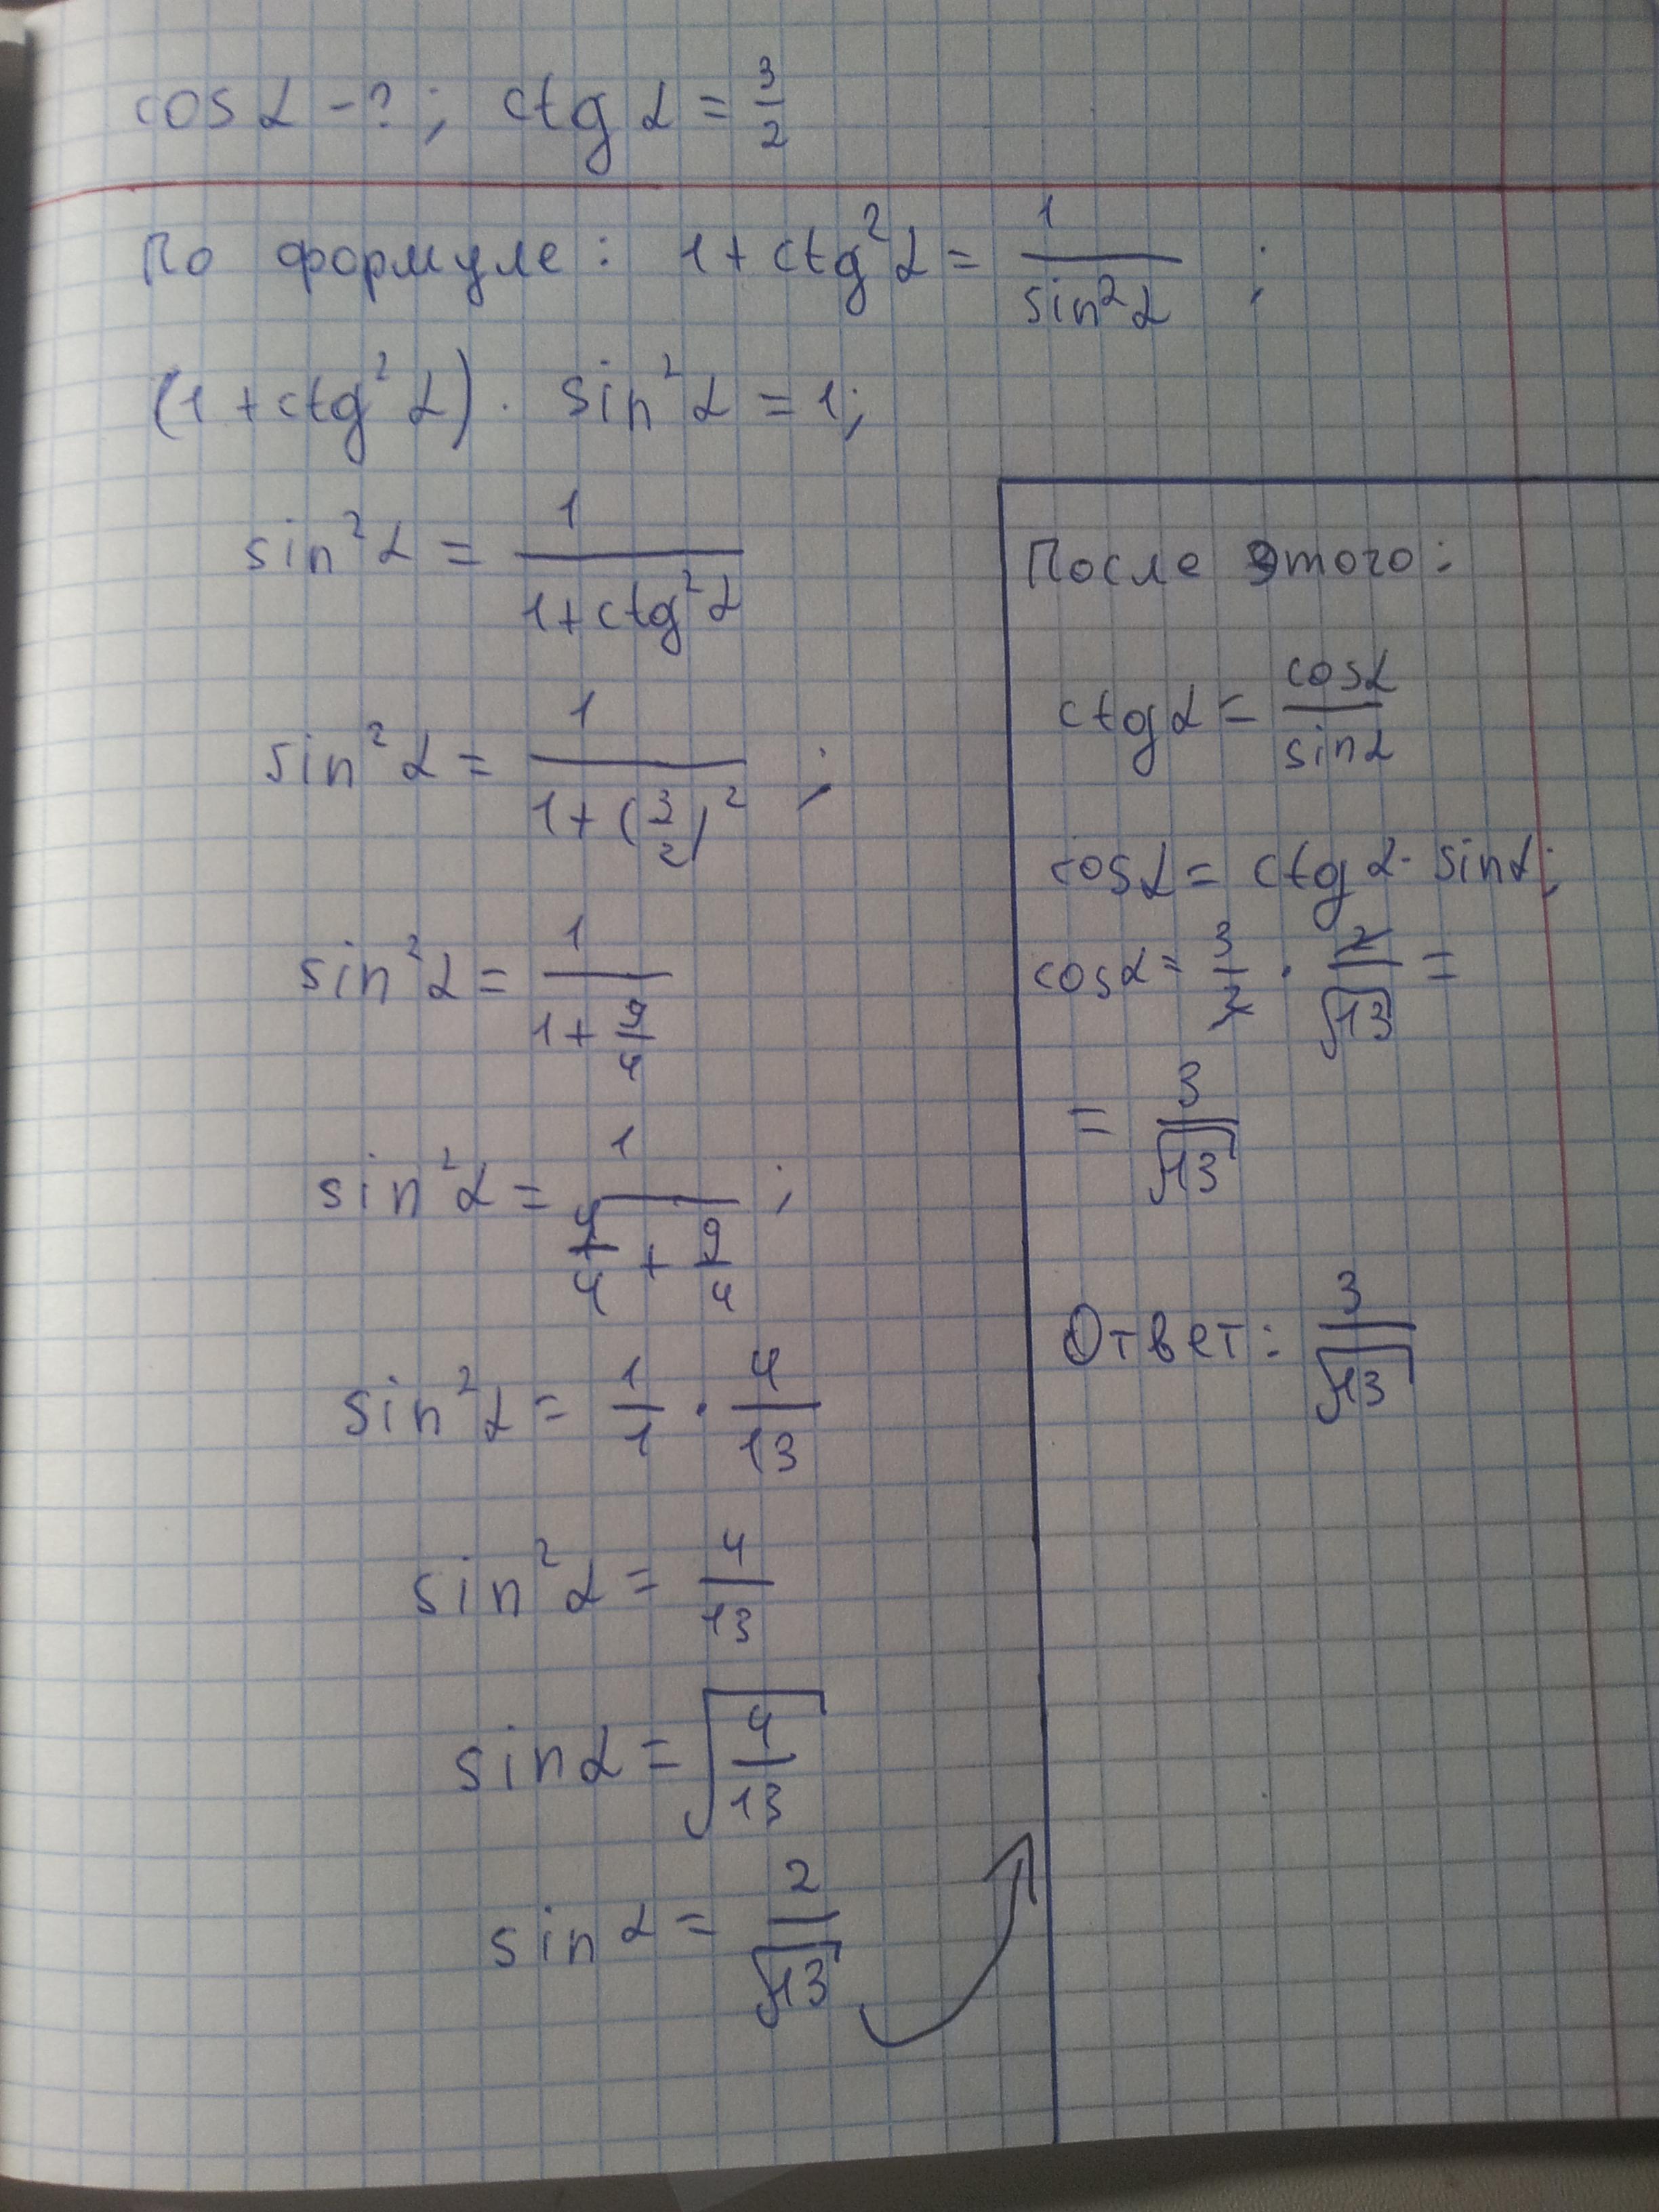 cos α - ?; ctg α = 3/2
По формуле: 1 + ctg² α = 1/sin² α ;
(1 + ctg² α) · sin² α = 1;
sin² α = 1/(1 + ctg² α)
sin² α = 1/(1 + (3/2)²) ;
sin² α = 1/(1 + 9/4)
sin² α = 1/(4/4 + 9/4) ;
sin² α = 1/1 · 4/13
sin² α = 4/13
sin α = √(4/13)
sin α = 2/√13
После этого:
ctg α = cos α/sin α
cos α = ctg α · sin α;
cos α = 3/2 · 2/√13 =
= 3/√13
Ответ: 3/√13